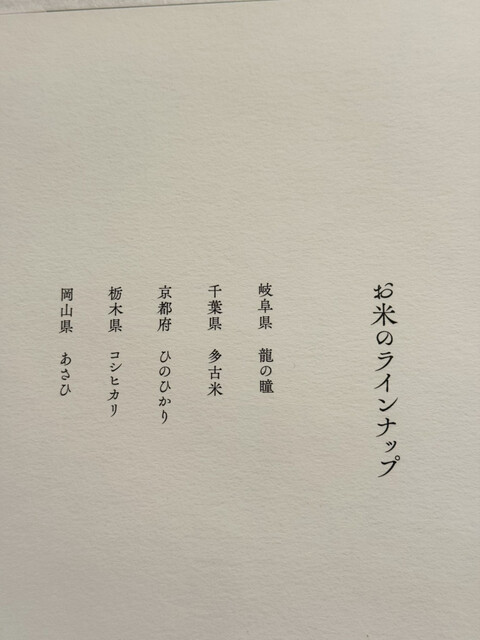 お米のラインナップ
岐阜県 龍の瞳
千葉県 多古米
京都府 ひのひかり
栃木県 コシヒカリ
岡山県 あさひ